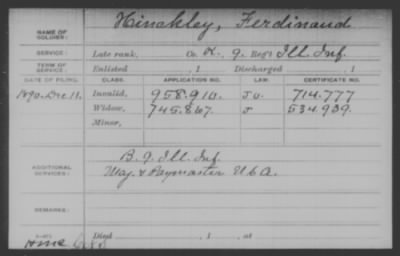 NAME OF SOLDIER: Hinckley, Ferdinand
SERVICE: Late rank, Co. K. 9. Reg't Ill. Inf.
TERM OF SERVICE: Enlisted , 1 Discharged , 1
DATE OF FILING. CLASS. APPLICATION NO. LAW. CERTIFICATE NO.
1890. Dec 11. Invalid, 958.910. 714.777
Widow, 745.867. J 534.939.
Minor,
ADDITIONAL SERVICES: B. 9. Ill. Inf.
Maj. & Paymaster U S A.
REMARKS:
Died , 1 , at